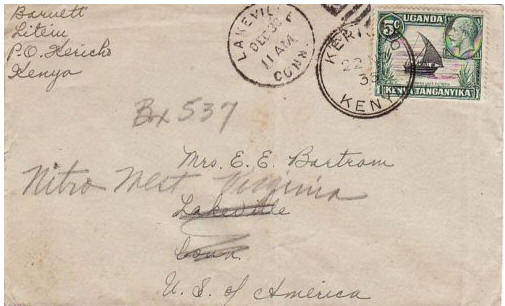 Barnett
Litein
P.O. Kericho
Kenya
LAKEVILLE
DEC 30
11 AM
CONN.
KERICHO
22
35
KENYA
5c UGANDA
KENYA TANGANYIKA
Box 537
Mrs. E. E. Bartram
Nitro West Virginia
Lakeville
Conn
U. S. of America